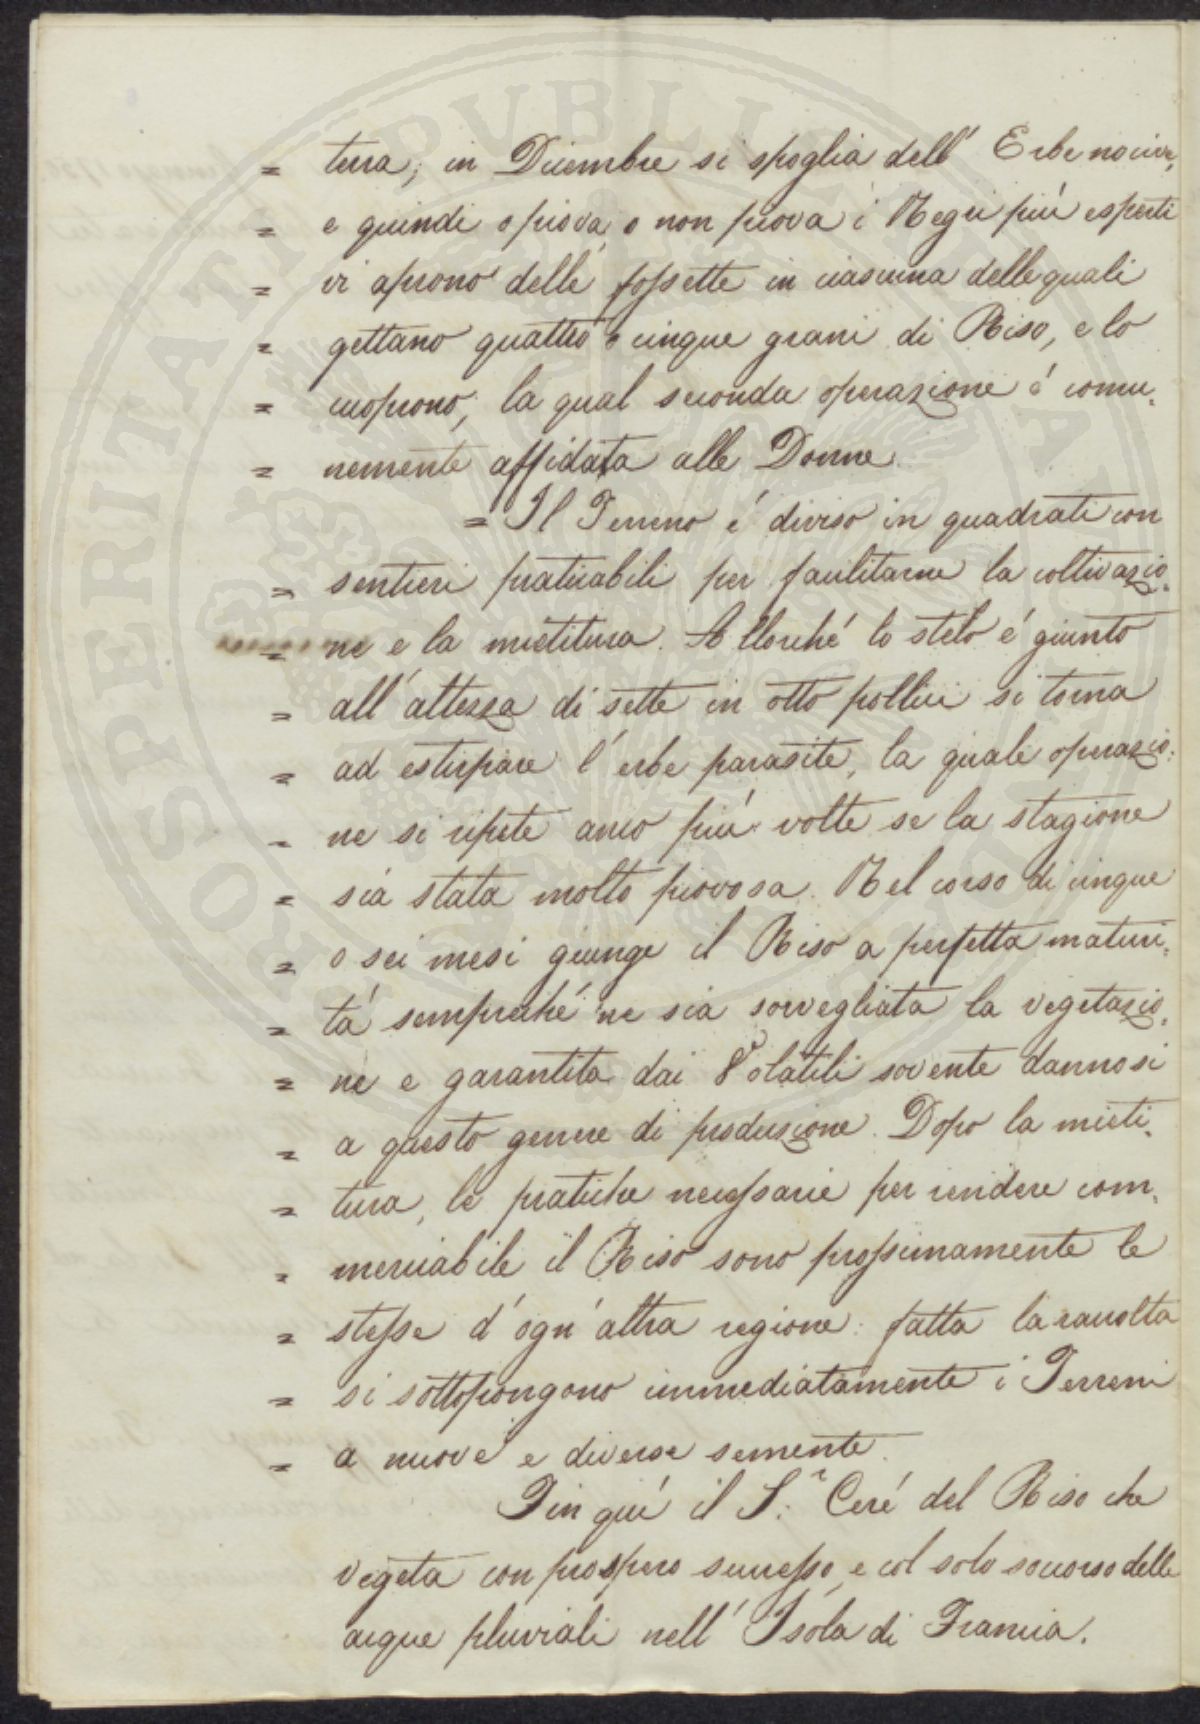 = terra; in Dicembre si spoglia dell' Erbe nocive,
= e quindi o piova, o non piova i Negri più esperti
= vi aprono delle fossette in ciascuna delle quali
= gettano quattro o cinque grani di Riso, e lo
= cuoprono; la qual seconda operazione é comu:
= nemente affidata alle Donne.
= Il Terreno é diviso in quadrati con
= sentieri praticabili per facilitarne la coltivazio:
= ne e la mietitura. Allorché lo stelo é giunto
= all'altezza di sette in otto pollici si torna
= ad estirpare l'erbe parasite, la quale operazio:
= ne si ripete anco più volte se la stagione
= sia stata molto piovosa. Nel corso di cinque
= o sei mesi giunge il Riso a perfetta maturi:
= tá sempreché ne sia sorvegliata la vegetazio:
= ne e garantita dai Volatili sovente dannosi
= a questo genere di produzione. Dopo la mieti:
= tura, le pratiche necessarie per rendere com:
= merciabile il Riso sono prossimamente le
= stesse d'ogn'altra regione: fatta la raccolta
= si sottopongono immediatamente i Terreni
= a nuove e diverse semente.
Fin quí il S.r Ceré del Riso che
vegeta con prospero successo, e col solo soccorso delle
acque pluviali nell'Isola di Francia.
PROSPERITATI PVBLICAE